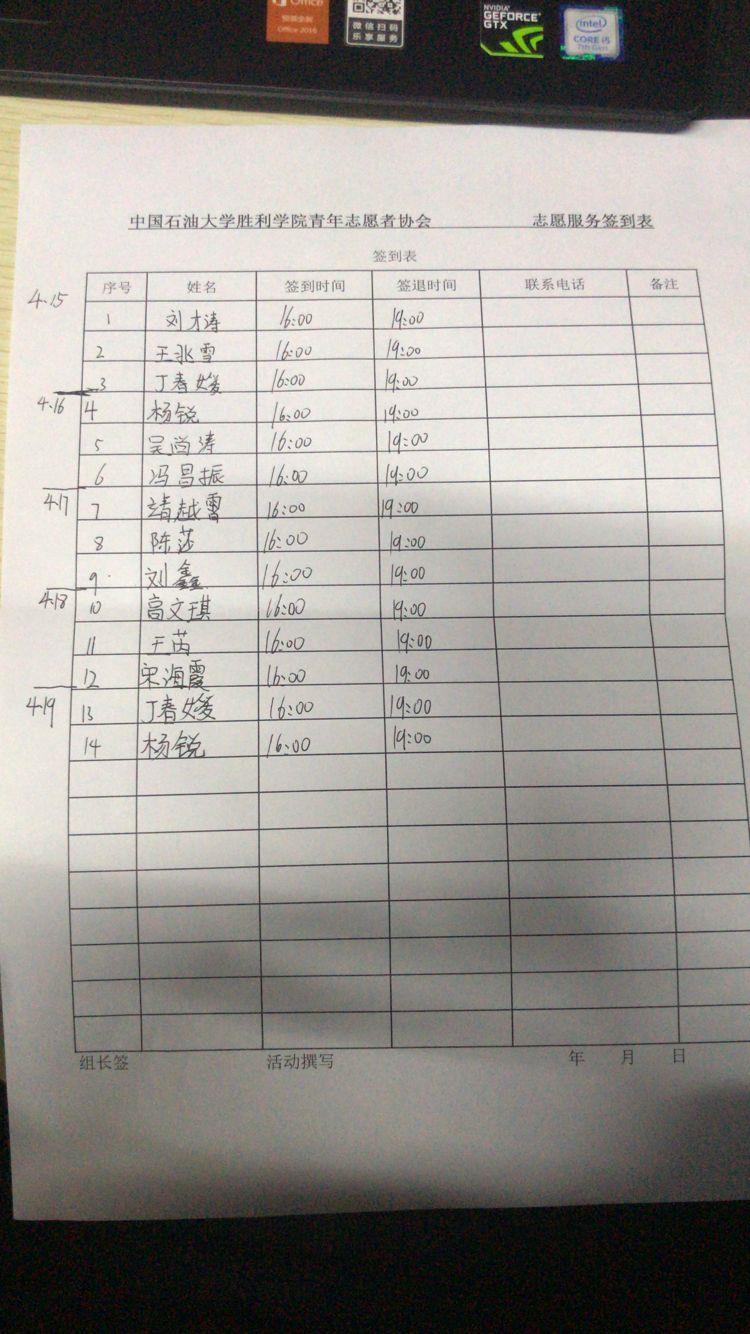 Office
预装全新
Office 2016
微信扫码
乐享服务
NVIDIA
GEFORCE
GTX
intel
CORE i5
7th Gen
中国石油大学胜利学院青年志愿者协会 志愿服务签到表
签到表
序号 姓名 签到时间 签退时间 联系电话 备注
4.15
1 刘才涛 16:00 19:00
2 王兆雪 16:00 19:00
3 丁春媛 16:00 19:00
4.16
4 杨锐 16:00 19:00
5 吴尚涛 16:00 19:00
6 冯昌振 16:00 19:00
4.17
7 靖越雷 16:00 19:00
8 陈莎 16:00 19:00
9 刘鑫 16:00 19:00
4.18
10 高文琪 16:00 19:00
11 王芮 16:00 19:00
12 宋海霞 16:00 19:00
4.19
13 丁春媛 16:00 19:00
14 杨锐 16:00 19:00
组长签 活动撰写 年 月 日